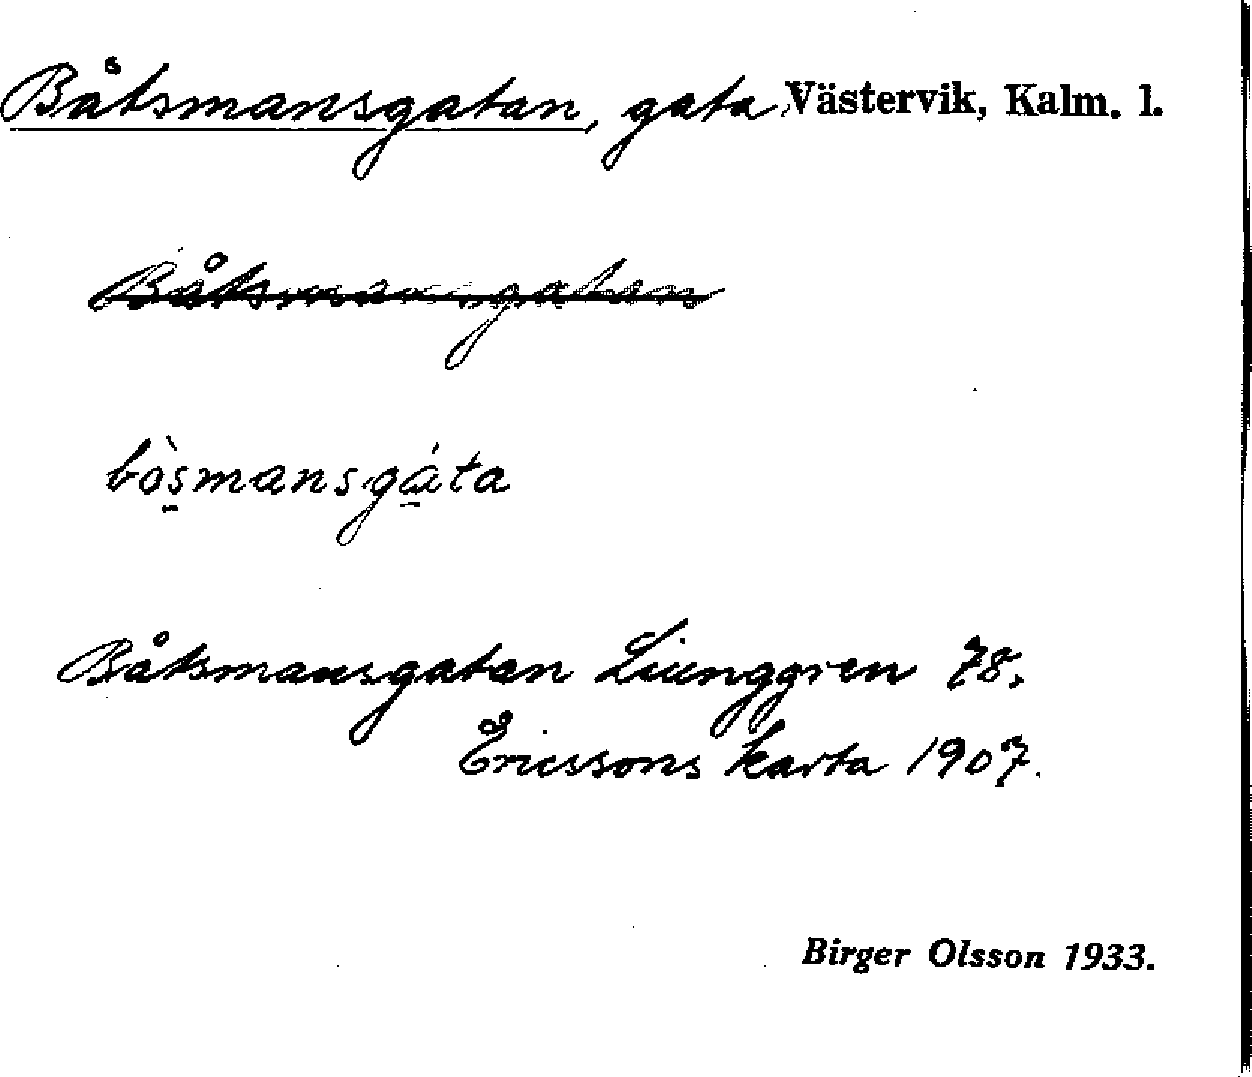 Båtsmansgatan, gata Västervik, Kalm. l.
Båtsmansgatan
bòs̠mansgá̠ta
Båtsmansgatan Liunggren 78.
Ericssons karta 1907.
Birger Olsson 1933.